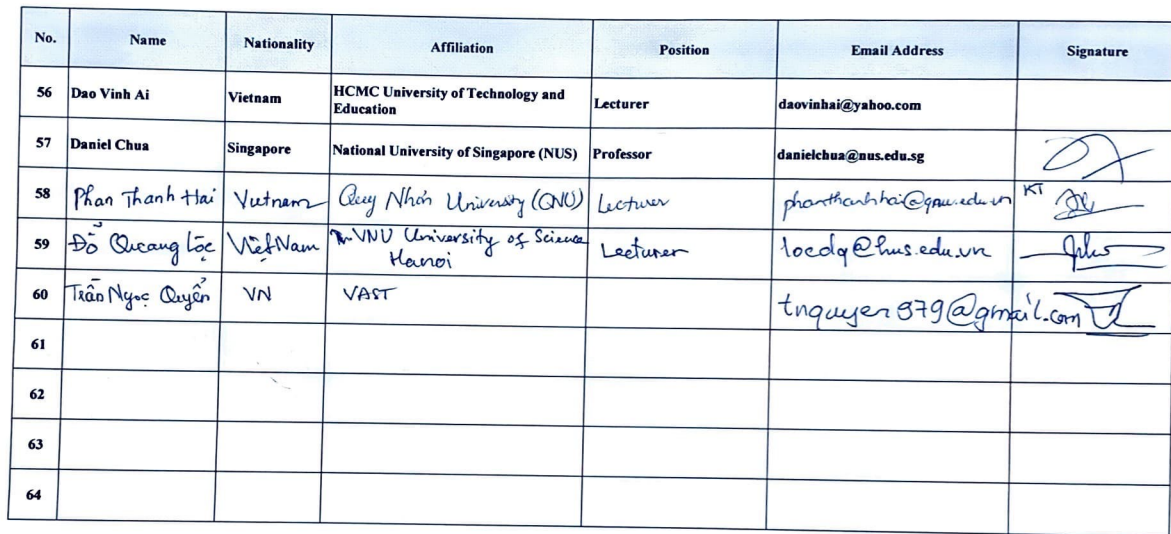 No. Name Nationality Affiliation Position Email Address Signature
56 Dao Vinh Ai Vietnam HCMC University of Technology and Education Lecturer daovinhai@yahoo.com
57 Daniel Chua Singapore National University of Singapore (NUS) Professor danielchua@nus.edu.sg
58 Phan Thanh Hai Vietnam Quy Nhơn University (QNU) Lecturer phanthanhhai@qnu.edu.vn KT
59 Đỗ Quang Lộc Việt Nam VNU University of Science Hanoi Lecturer locdq@hus.edu.vn
60 Trần Ngọc Quyển VN VAST tnquyen979@gmail.com
61
62
63
64